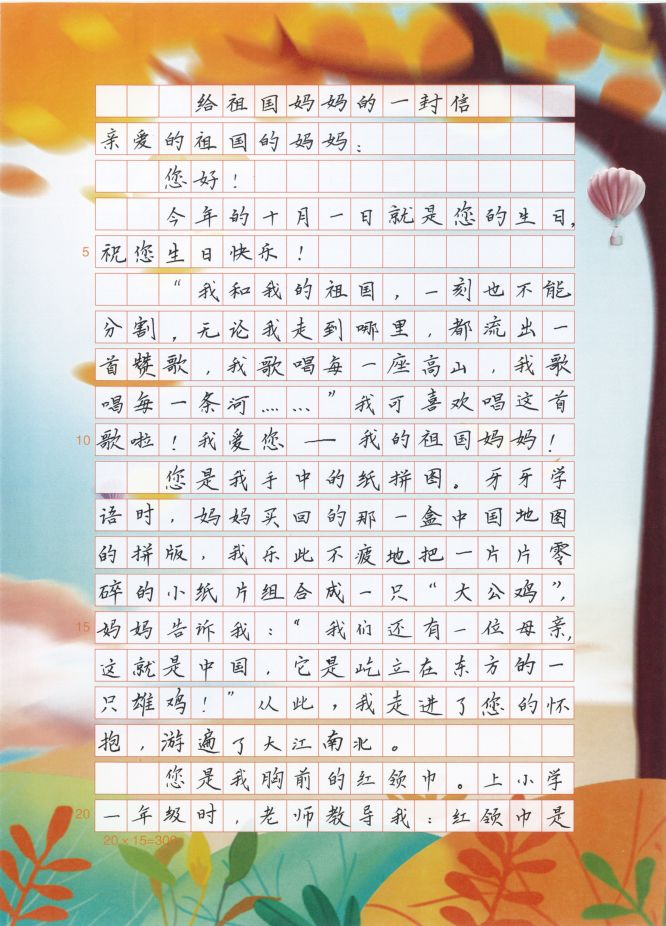 给祖国妈妈的一封信
亲爱的祖国的妈妈：
您好！
今年的十月一日就是您的生日，
5 祝您生日快乐！
“我和我的祖国，一刻也不能
分割，无论我走到哪里，都流出一
首赞歌，我歌唱每一座高山，我歌
唱每一条河……”我可喜欢唱这首
10 歌啦！我爱您——我的祖国妈妈！
您是我手中的纸拼图。牙牙学
语时，妈妈买回的那一盒中国地图
的拼版，我乐此不疲地把一片片零
碎的小纸片组合成一只“大公鸡”，
15 妈妈告诉我：“我们还有一位母亲，
这就是中国，它是屹立在东方的一
只雄鸡！”从此，我走进了您的怀
抱，游遍了大江南北。
您是我胸前的红领巾。上小学
20 一年级时，老师教导我：红领巾是
20×15=300